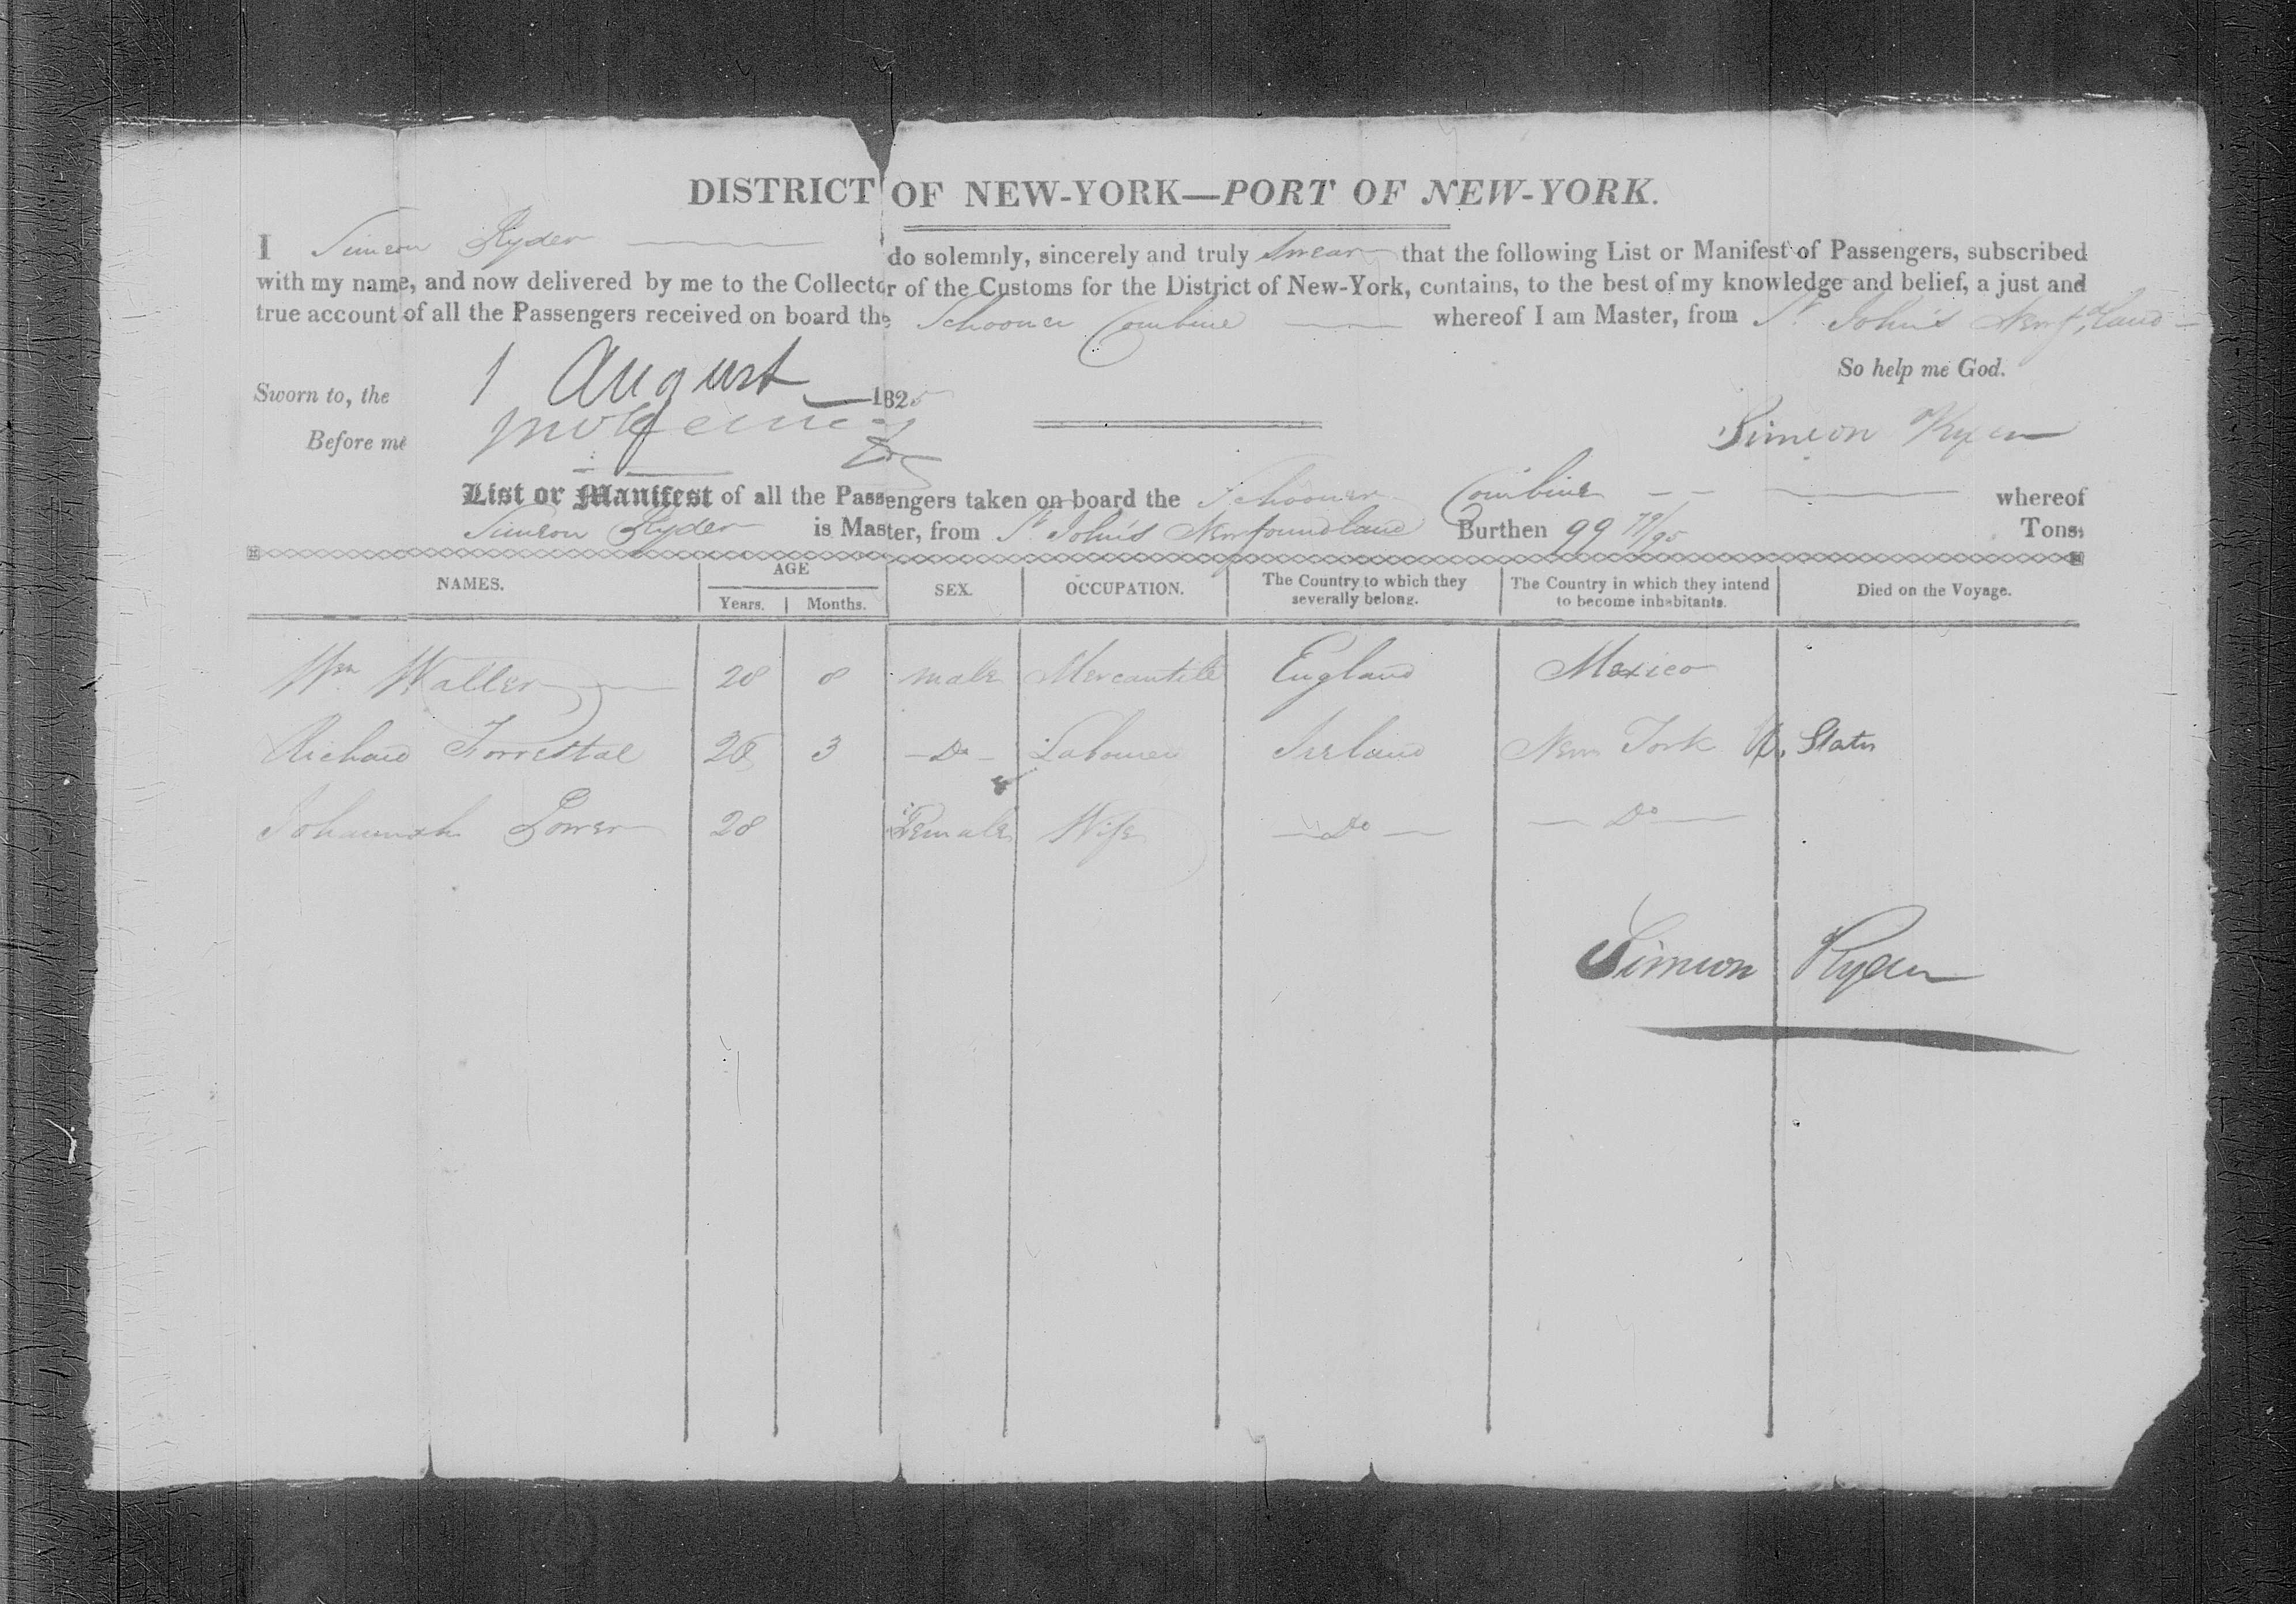 DISTRICT OF NEW-YORK—PORT OF NEW-YORK.
I Simeon Ryder do solemnly, sincerely and truly Swear that the following List or Manifest of Passengers, subscribed
with my name, and now delivered by me to the Collector of the Customs for the District of New-York, contains, to the best of my knowledge and belief, a just and
true account of all the Passengers received on board the Schooner Combine whereof I am Master, from St John's Newfdland
So help me God.
Sworn to, the 1 August 1825
Before me
Simeon Ryder
List or Manifest of all the Passengers taken on board the Schooner Combine whereof
Simeon Ryder is Master, from St John's Newfoundland Burthen 99 79/95 Tons.
NAMES. AGE Years. Months. SEX. OCCUPATION. The Country to which they severally belong. The Country in which they intend to become inhabitants. Died on the Voyage.
Wm Waller 28 8 male Mercantile England Mexico
Richard Forrestal 28 3 Do Labourer Irland New York U. States
Johannah Power 28 Female Wife Do Do
Simeon Ryder